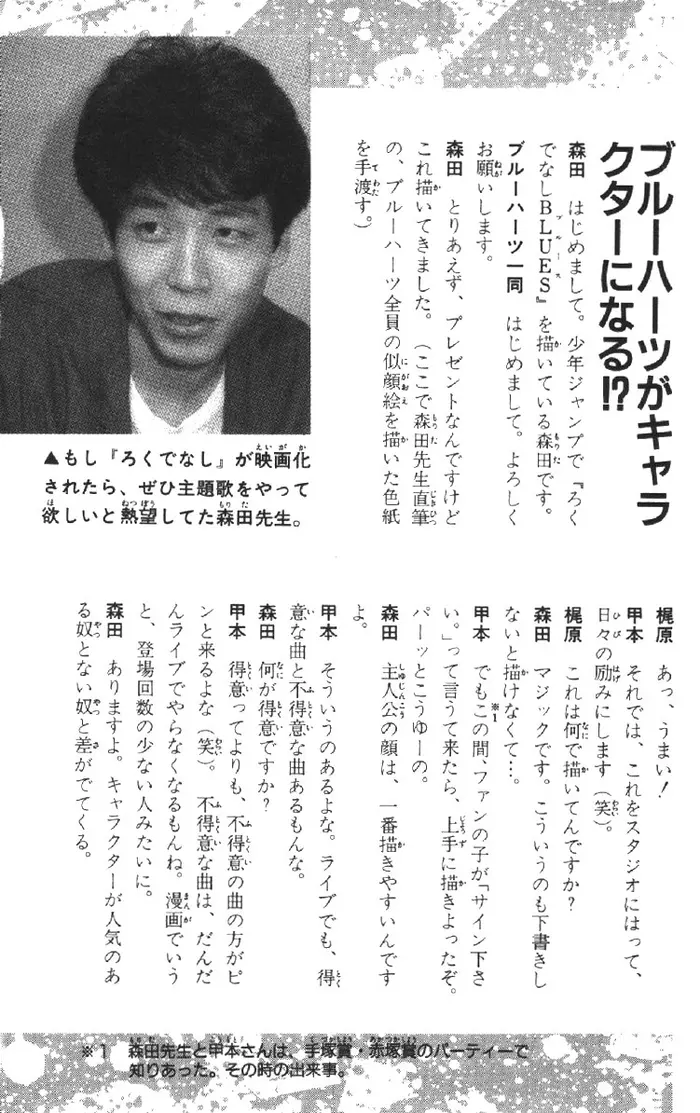 ブルーハーツがキャラ
クターになる!?
森田　はじめまして。少年ジャンプで『ろく
でなしBLUES』を描いている森田です。
ブルーハーツ一同　はじめまして。よろしく
お願いします。
森田　とりあえず、プレゼントなんですけど
これ描いてきました。（ここで森田先生直筆
の、ブルーハーツ全員の似顔絵を描いた色紙
を手渡す。）
▲もし『ろくでなし』が映画化
されたら、ぜひ主題歌をやって
欲しいと熱望してた森田先生。
梶原　あっ、うまい！
甲本　それでは、これをスタジオにはって、
日々の励みにします（笑）。
梶原　これは何で描いてんですか？
森田　マジックです。こういうのも下書きし
ないと描けなくて…。
甲本　でもこの間、※1ファンの子が「サイン下さ
い。」って言うて来たら、上手に描きよったぞ。
パーッとこうゆーの。
森田　主人公の顔は、一番描きやすいんです
よ。
甲本　そういうのあるよな。ライブでも、得
意な曲と不得意な曲あるもんな。
森田　何が得意ですか？
甲本　得意ってよりも、不得意の曲の方がピ
ンと来るよな（笑）。不得意な曲は、だんだ
んライブでやらなくなるもんね。漫画でいう
と、登場回数の少ない人みたいに。
森田　ありますよ。キャラクターが人気のあ
る奴とない奴と差がでてくる。
※1　森田先生と甲本さんは、手塚賞・赤塚賞のパーティーで
知りあった。その時の出来事。